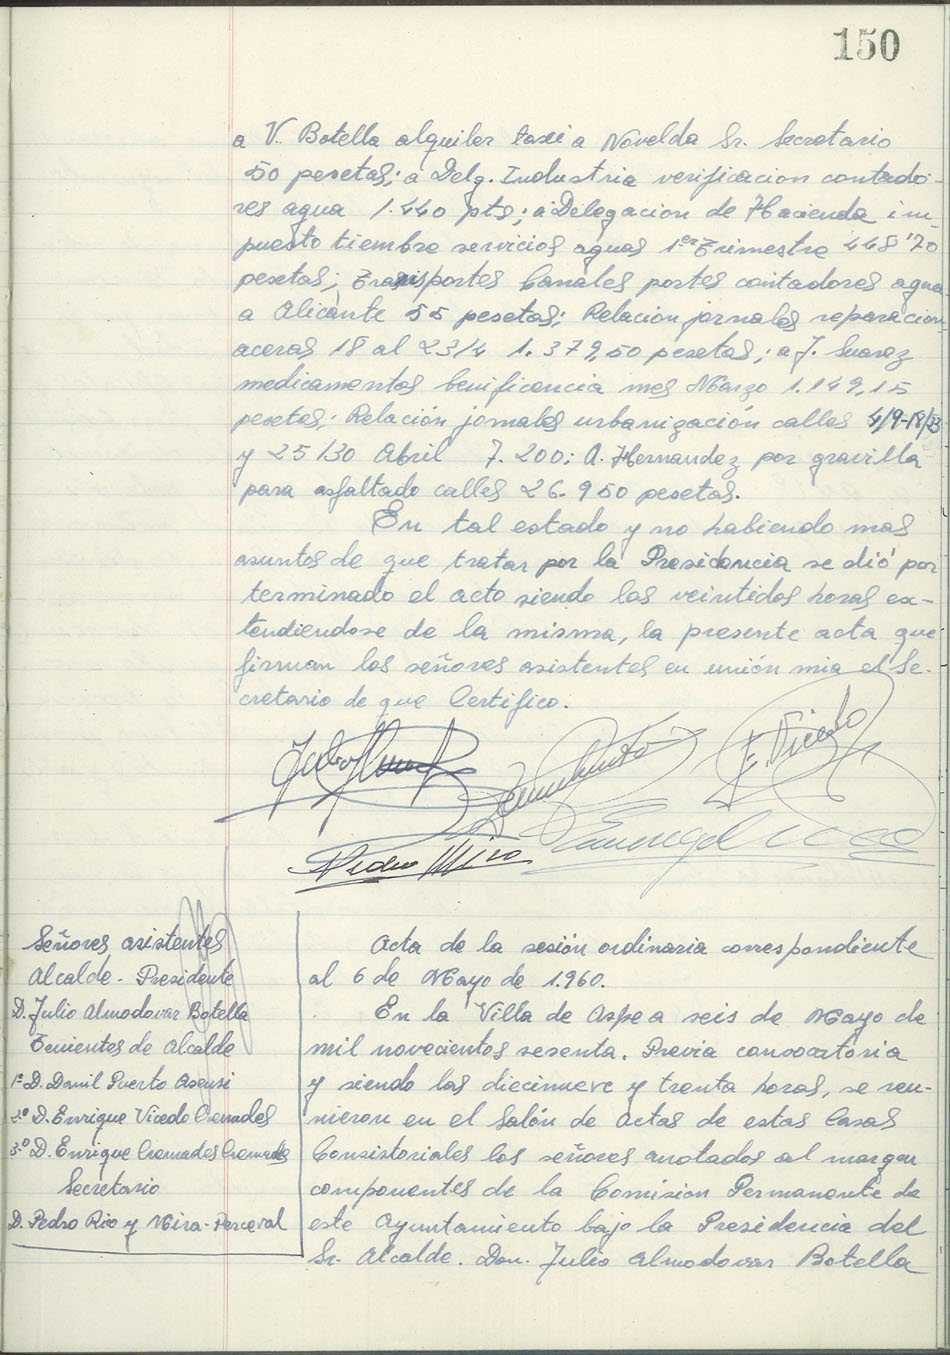 150
a V. Botella alquiler taxi a Novelda Sr. Secretario
50 pesetas; a Delg. Industria verificacion contado-
res agua 1.440 pts; a Delegacion de Hacienda im-
puesto tiembre servicios aguas 1er Trimestre 448'70
pesetas; Transportes Canales portes contadores agua
a Alicante 55 pesetas; Relacion jornales reparacion
aceras 18 al 23/4 1.379,50 pesetas; a J. Suarez
medicamentos benificencia mes Marzo 1.149,15
pesetas; Relación jornales urbanización calles 4/9-18/23
y 25/30 Abril 7.200; A. Hernandez por gravilla
para asfaltado calles 26.950 pesetas.
En tal estado y no habiendo mas
asuntos de que tratar por la Presidencia se dió por
terminado el acto siendo las veintidos horas ex-
tendiendose de la misma, la presente acta que
firman los señores asistentes en unión mia el Se-
cretario de que Certifico.
E. Vicedo
Pedro Miro
Señores asistentes
Alcalde-Presidente
D. Julio Almodovar Botella
Tenientes de Alcalde
1º D. Danil Puerto Asensi
2º D. Enrique Vicedo Cremades
3º D. Enrique Cremades Cremades
Secretario
D. Pedro Rico y Mira-Perceval
Acta de la sesión ordinaria correspondiente
al 6 de Mayo de 1.960.
En la Villa de Aspe a seis de Mayo de
mil novecientos sesenta. Previa convocatoria
y siendo las diecinueve y trenta horas, se reu-
nieron en el Salón de Actas de estas Casas
Consistoriales los señores anotados al margen
componentes de la Comision Permanente de
este Ayuntamiento bajo la Presidencia del
Sr. Alcalde. Don. Julio Almodovar Botella